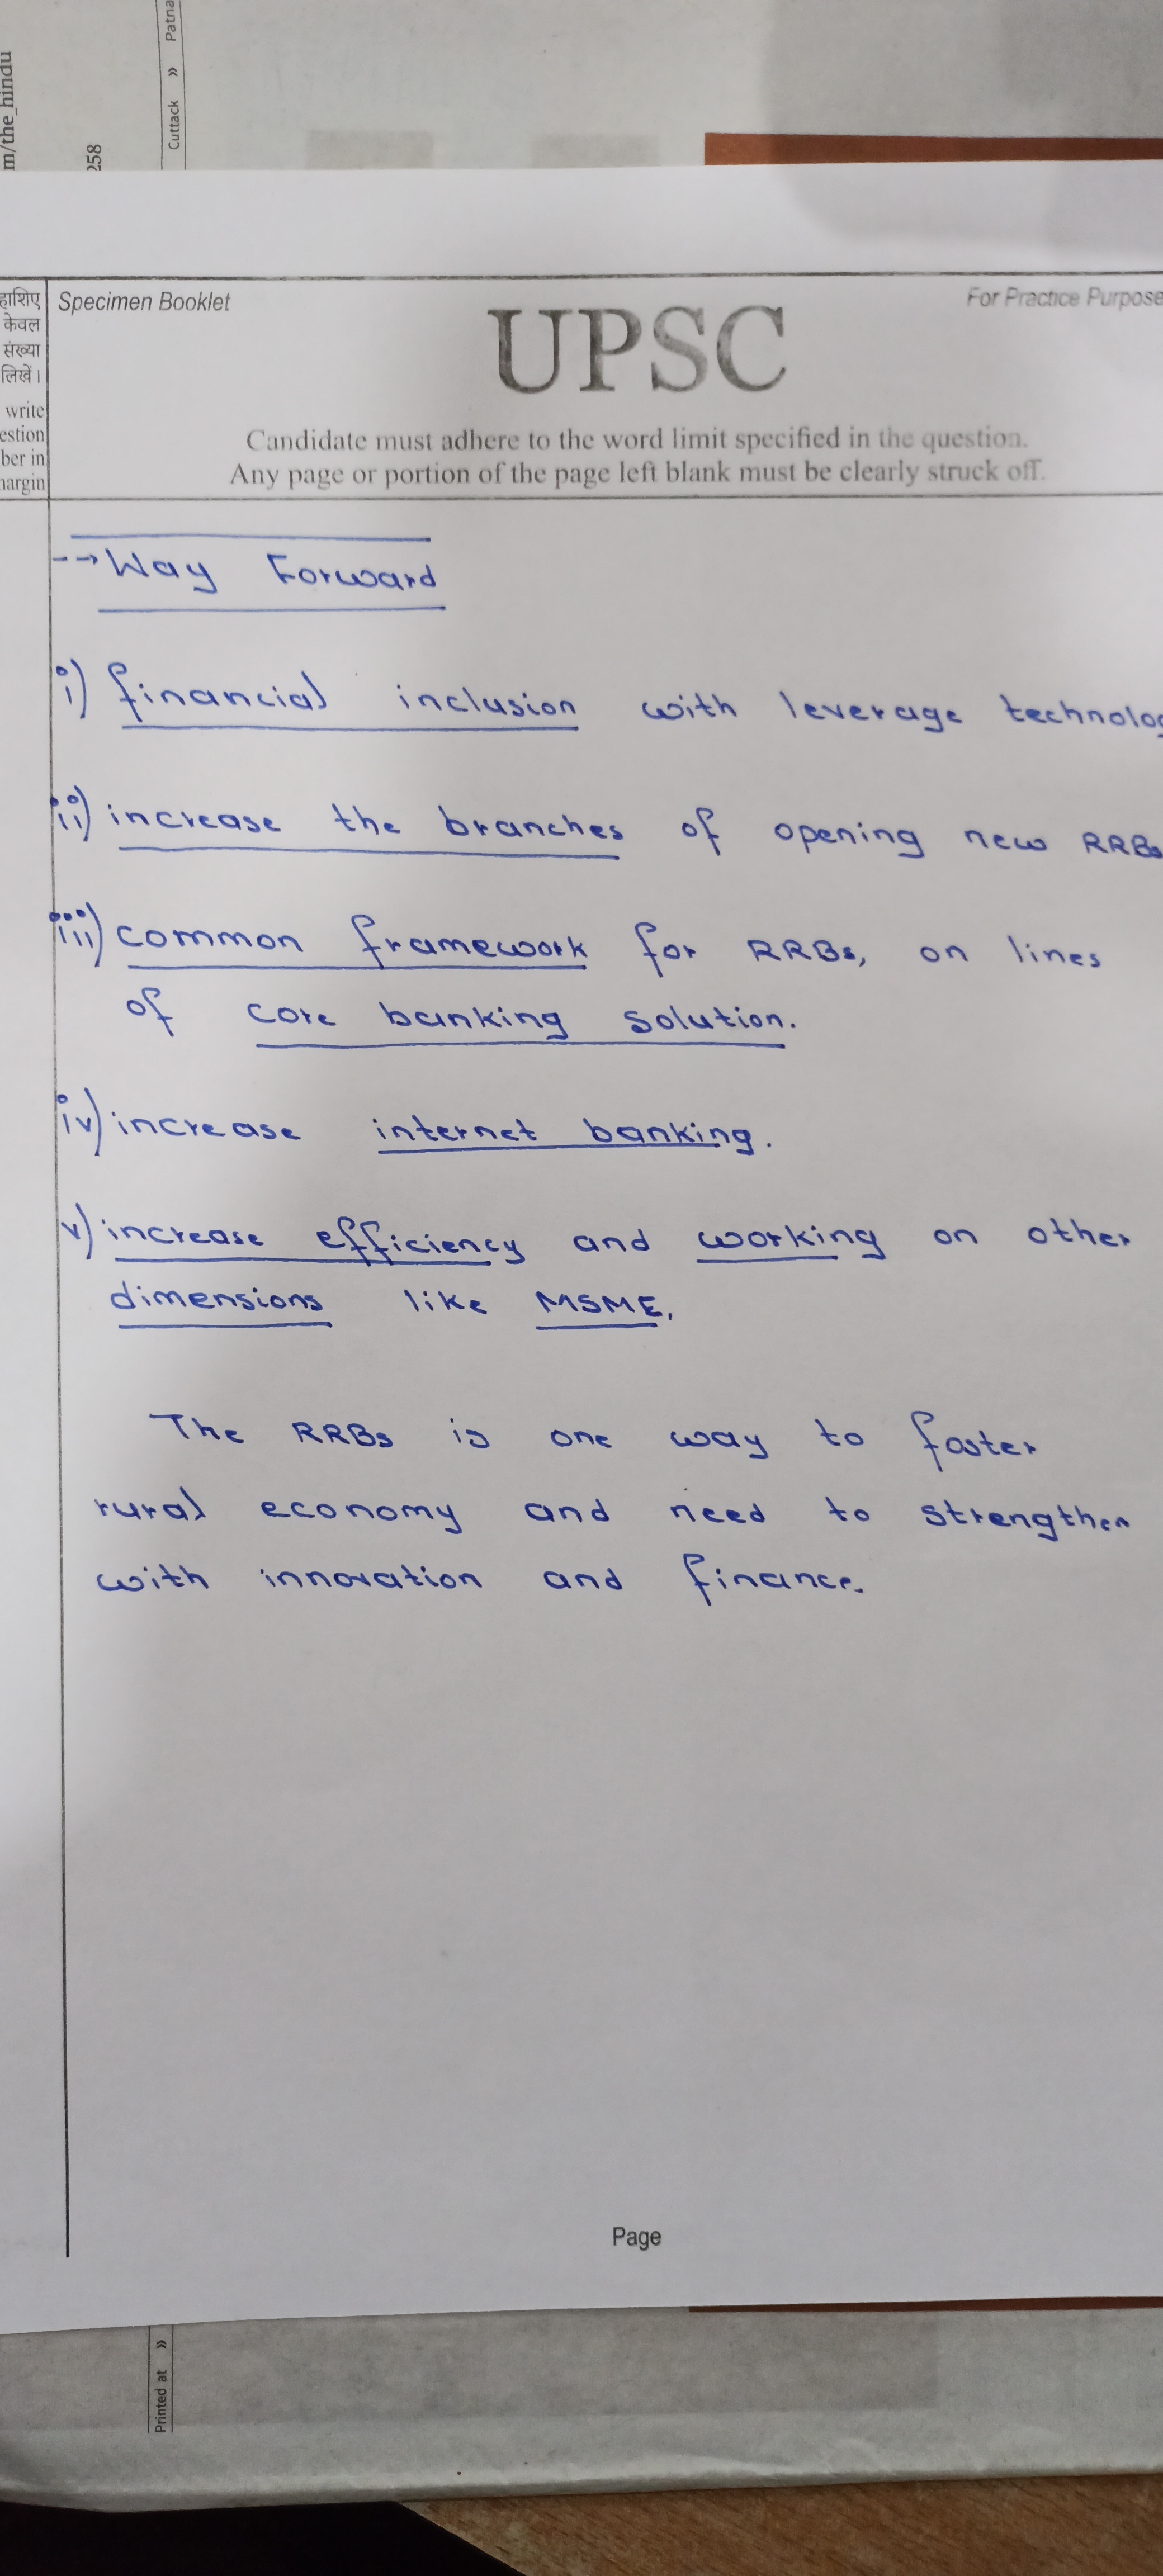 m/the_hindu
258
Cuttack » Patna
हाशिए
केवल
संख्या
लिखें।
write
estion
ber in
margin
Specimen Booklet
For Practice Purpose
UPSC
Candidate must adhere to the word limit specified in the question.
Any page or portion of the page left blank must be clearly struck off.
--→ Way Forward
i) financial inclusion with leverage technolog
ii) increase the branches of opening new RRBs
iii) common framework for RRBs, on lines
of core banking solution.
iv) increase internet banking.
v) increase efficiency and working on other
dimensions like MSME,
The RRBs is one way to foster
rural economy and need to strengthen
with innovation and finance.
Page
Printed at »